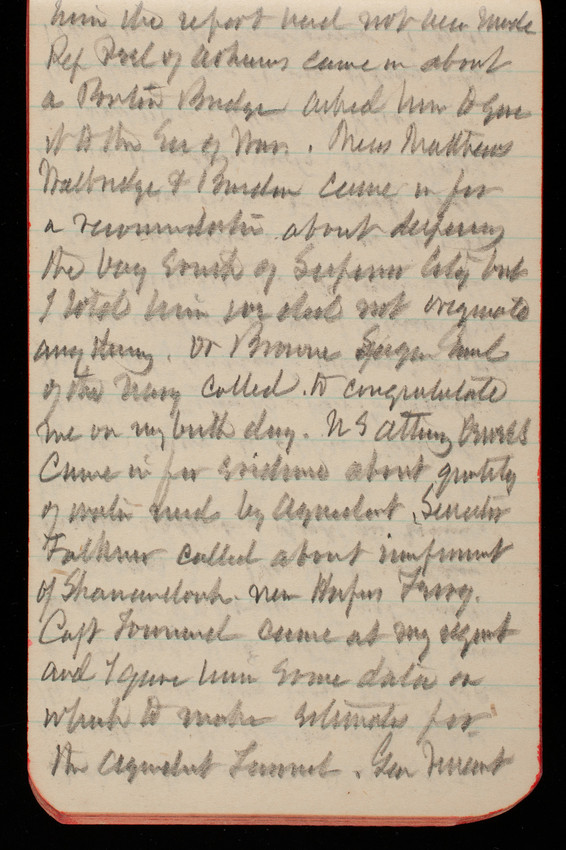 him the report had not been made
Rep Peel of Arkansas came in about
a Pontoon Bridge asked him to give
it to the Sec of War. Mess Matthews
Walbridge & Burdon came in for
a recomendation about deepening
the bay South of Superior City but
I told him we shod not originate
any thing. Dr Browne Surgeon Genl
of the Navy called to congratulate
me on my birth day. U S Attorney
Came in for evidence about quantity
of water used by Aqueduct. Senator
Faulkner called about improvement
of Shanandoah near Harpers Ferry.
Capt Townsend came at my request
and I gave him some data on
which to make estimates for
the aqueduct Tunnel. Gen Vincent